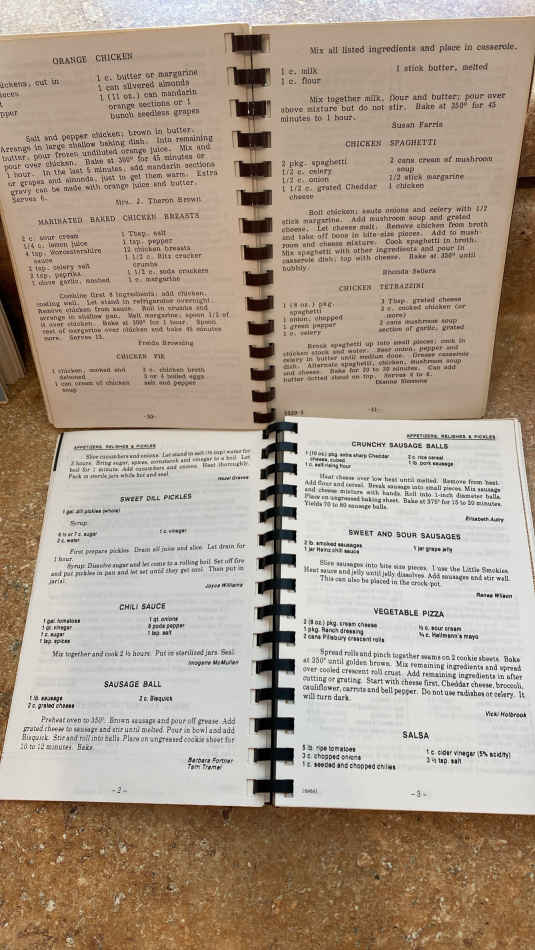 ORANGE CHICKEN
ickens, cut in
ieces
t
pper
1 c. butter or margarine
1 can slivered almonds
1 (11 oz.) can mandarin
orange sections or 1
bunch seedless grapes
Salt and pepper chicken; brown in butter.
Arrange in large shallow baking dish. Into remaining
butter, pour frozen undiluted orange juice. Mix and
pour over chicken. Bake at 300° for 45 minutes or
1 hour. In the last 5 minutes, add mandarin sections
or grapes and almonds, just to get them warm. Extra
gravy can be made with orange juice and butter.
Serves 6.
Mrs. J. Theron Brown
MARINATED BAKED CHICKEN BREASTS
2 c. sour cream
1/4 c. lemon juice
4 tsp. Worcestershire
sauce
2 tsp. celery salt
2 tsp. paprika
1 clove garlic, mashed
1 Tbsp. salt
1 tsp. pepper
12 chicken breasts
1 1/2 c. Ritz cracker
crumbs
1 1/2 c. soda crackers
1 c. margarine
Combine first 8 ingredients; add chicken,
coating well. Let stand in refrigerator overnight.
Remove chicken from sauce. Roll in crumbs and
arrange in shallow pan. Melt margarine; spoon 1/2 of
it over chicken. Bake at 300° for 1 hour. Spoon
rest of margarine over chicken and bake 45 minutes
more. Serves 12.
Freda Browning
CHICKEN PIE
1 chicken, cooked and
deboned
1 can cream of chicken
soup
2 c. chicken broth
3 or 4 boiled eggs
salt and pepper
-30-
Mix all listed ingredients and place in casserole.
1 c. milk
1 c. flour
1 stick butter, melted
Mix together milk, flour and butter; pour over
above mixture but do not stir. Bake at 350° for 45
minutes to 1 hour.
Susan Farris
CHICKEN SPAGHETTI
2 pkg. spaghetti
1/2 c. celery
1/2 c. onion
1 1/2 c. grated Cheddar
cheese
2 cans cream of mushroom
soup
1/2 stick margarine
1 chicken
Boil chicken; saute onions and celery with 1/2
stick margarine. Add mushroom soup and grated
cheese. Let cheese melt. Remove chicken from broth
and take off bone in bite-size pieces. Add to mush-
room and cheese mixture. Cook spaghetti in broth.
Mix spaghetti with other ingredients and pour in
casserole dish; top with cheese. Bake at 350° until
bubbly.
Rhonda Sellers
CHICKEN TETRAZZINI
1 (8 oz.) pkg.
spaghetti
1 onion, chopped
1 green pepper
1 c. celery
3 Tbsp. grated cheese
2 c. cooked chicken (or
more)
2 cans mushroom soup
section of garlic, grated
Break spaghetti up into small pieces; cook in
chicken stock and water. Sear onion, pepper and
celery in butter until medium done. Grease casserole
dish. Alternate spaghetti, chicken, mushroom soup
and cheese. Bake for 20 to 30 minutes. Can add
butter dotted stand on top. Serves 4 to 6.
Dianne Simmons
-31-
APPETIZERS, RELISHES & PICKLES
Slice cucumbers and onions. Let stand in salt (½ cup) water for
2 hours. Bring sugar, spices, cornstarch and vinegar to a boil. Let
boil for 1 minute. Add cucumbers and onions. Heat thoroughly.
Pack in sterile jars while hot and seal.
Hazel Graves
SWEET DILL PICKLES
1 gal. dill pickles (whole)
Syrup:
6 ½ or 7 c. sugar
2 c. water
1 c. vinegar
First prepare pickles. Drain off juice and slice. Let drain for
1 hour.
Syrup: Dissolve sugar and let come to a rolling boil. Set off fire
and put pickles in pan and let set until they get cool. Then put in
jar(s).
Joyce Williams
CHILI SAUCE
1 gal. tomatoes
1 qt. vinegar
1 c. sugar
1 tsp. spices
1 qt. onions
6 pods pepper
1 tsp. salt
Mix together and cook 2 ½ hours. Put in sterilized jars. Seal.
Imogene McMullen
SAUSAGE BALL
1 lb. sausage
2 c. grated cheese
2 c. Bisquick
Preheat oven to 350°. Brown sausage and pour off grease. Add
grated cheese to sausage and stir until melted. Pour in bowl and add
Bisquick. Stir and roll into balls. Place on ungreased cookie sheet for
10 to 12 minutes. Bake.
Barbara Fortner
Tam Tramel
- 2 -
APPETIZERS, RELISHES & PICKLES
CRUNCHY SAUSAGE BALLS
1 (10 oz.) pkg. extra sharp Cheddar
cheese, cubed
1 c. self-rising flour
2 c. rice cereal
1 lb. pork sausage
Heat cheese over low heat until melted. Remove from heat.
Add flour and cereal. Break sausage into small pieces. Mix sausage
and cheese mixture with hands. Roll into 1-inch diameter balls.
Place on ungreased baking sheet. Bake at 375° for 15 to 20 minutes.
Yields 70 to 80 sausage balls.
Elizabeth Autry
SWEET AND SOUR SAUSAGES
2 lb. smoked sausages
1 jar Heinz chili sauce
1 jar grape jelly
Slice sausages into bite size pieces. I use the Little Smokies.
Heat sauce and jelly until jelly dissolves. Add sausages and stir well.
This can also be placed in the crock-pot.
Renea Wilson
VEGETABLE PIZZA
2 (8 oz.) pkg. cream cheese
1 pkg. Ranch dressing
2 cans Pillsbury crescent rolls
½ c. sour cream
¾ c. Hellmann's mayo
Spread rolls and pinch together seams on 2 cookie sheets. Bake
at 350° until golden brown. Mix remaining ingredients and spread
over cooled crescent roll crust. Add remaining ingredients in after
cutting or grating. Start with cheese first, Cheddar cheese, broccoli,
cauliflower, carrots and bell pepper. Do not use radishes or celery. It
will turn dark.
Vicki Holbrook
SALSA
5 lb. ripe tomatoes
3 c. chopped onions
1 c. seeded and chopped chilies
1 c. cider vinegar (5% acidity)
3 ½ tsp. salt
- 3 -